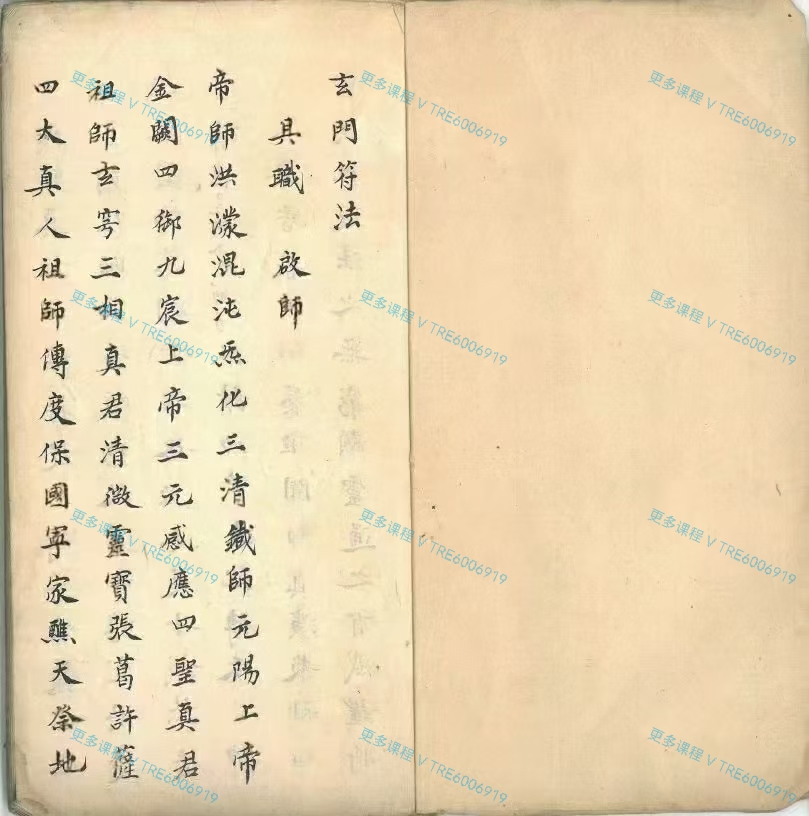 玄門符法
具職 啟師
帝師洪濛混沌炁化三清鐵師元陽上帝
金闕四御九宸上帝三元感應四聖真君
祖師玄穹三相真君清微靈寶張葛許薩
四大真人祖師傳度保國寧家醮天祭地
更多课程 V TRE6006919
更多课程 V TRE6006919
更多课程 V TRE6006919
更多课程 V TRE6006919
更多课程 V TRE6006919
更多课程 V TRE6006919
更多课程 V TRE6006919
更多课程 V TRE6006919
更多课程 V TRE6006919
更多课程 V TRE6006919
更多课程 V TRE6006919
更多课程 V TRE6006919